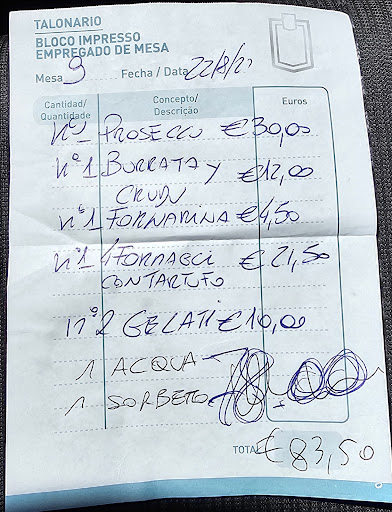 TALONARIO
BLOCO IMPRESSO
EMPREGADO DE MESA
Mesa 9 Fecha / Data 22/8/2
Cantidad/ Quantidade Concepto/ Descrição Euros
n° PROSECCO €30,00
n°1 BURRATA y €12,00
CRUDU
n°1 FORNARINA €4,50
n°1 4 FORMAGGI €21,50
CON TARTUFO
n°2 GELATI €10,00
1 ACQUA
1 SORBETTO
TOTAL €83,50